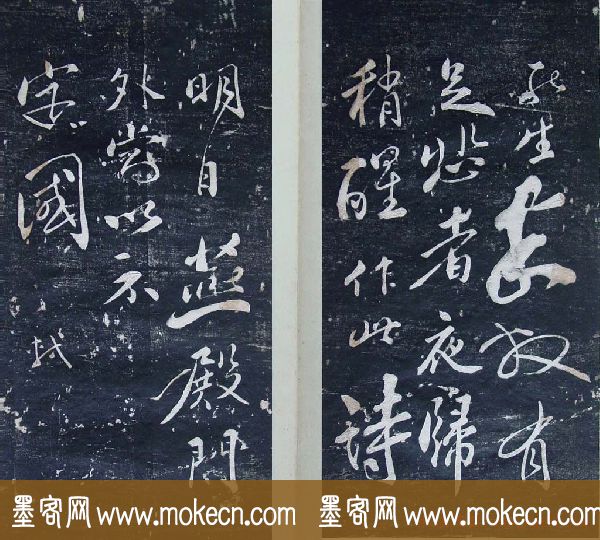 死生有
足悲者夜歸
稍醒作此詩
明日燕殿門
外當以示
定國
軾
墨客网 www.mokecn.com
墨客网 www.mokecn.com